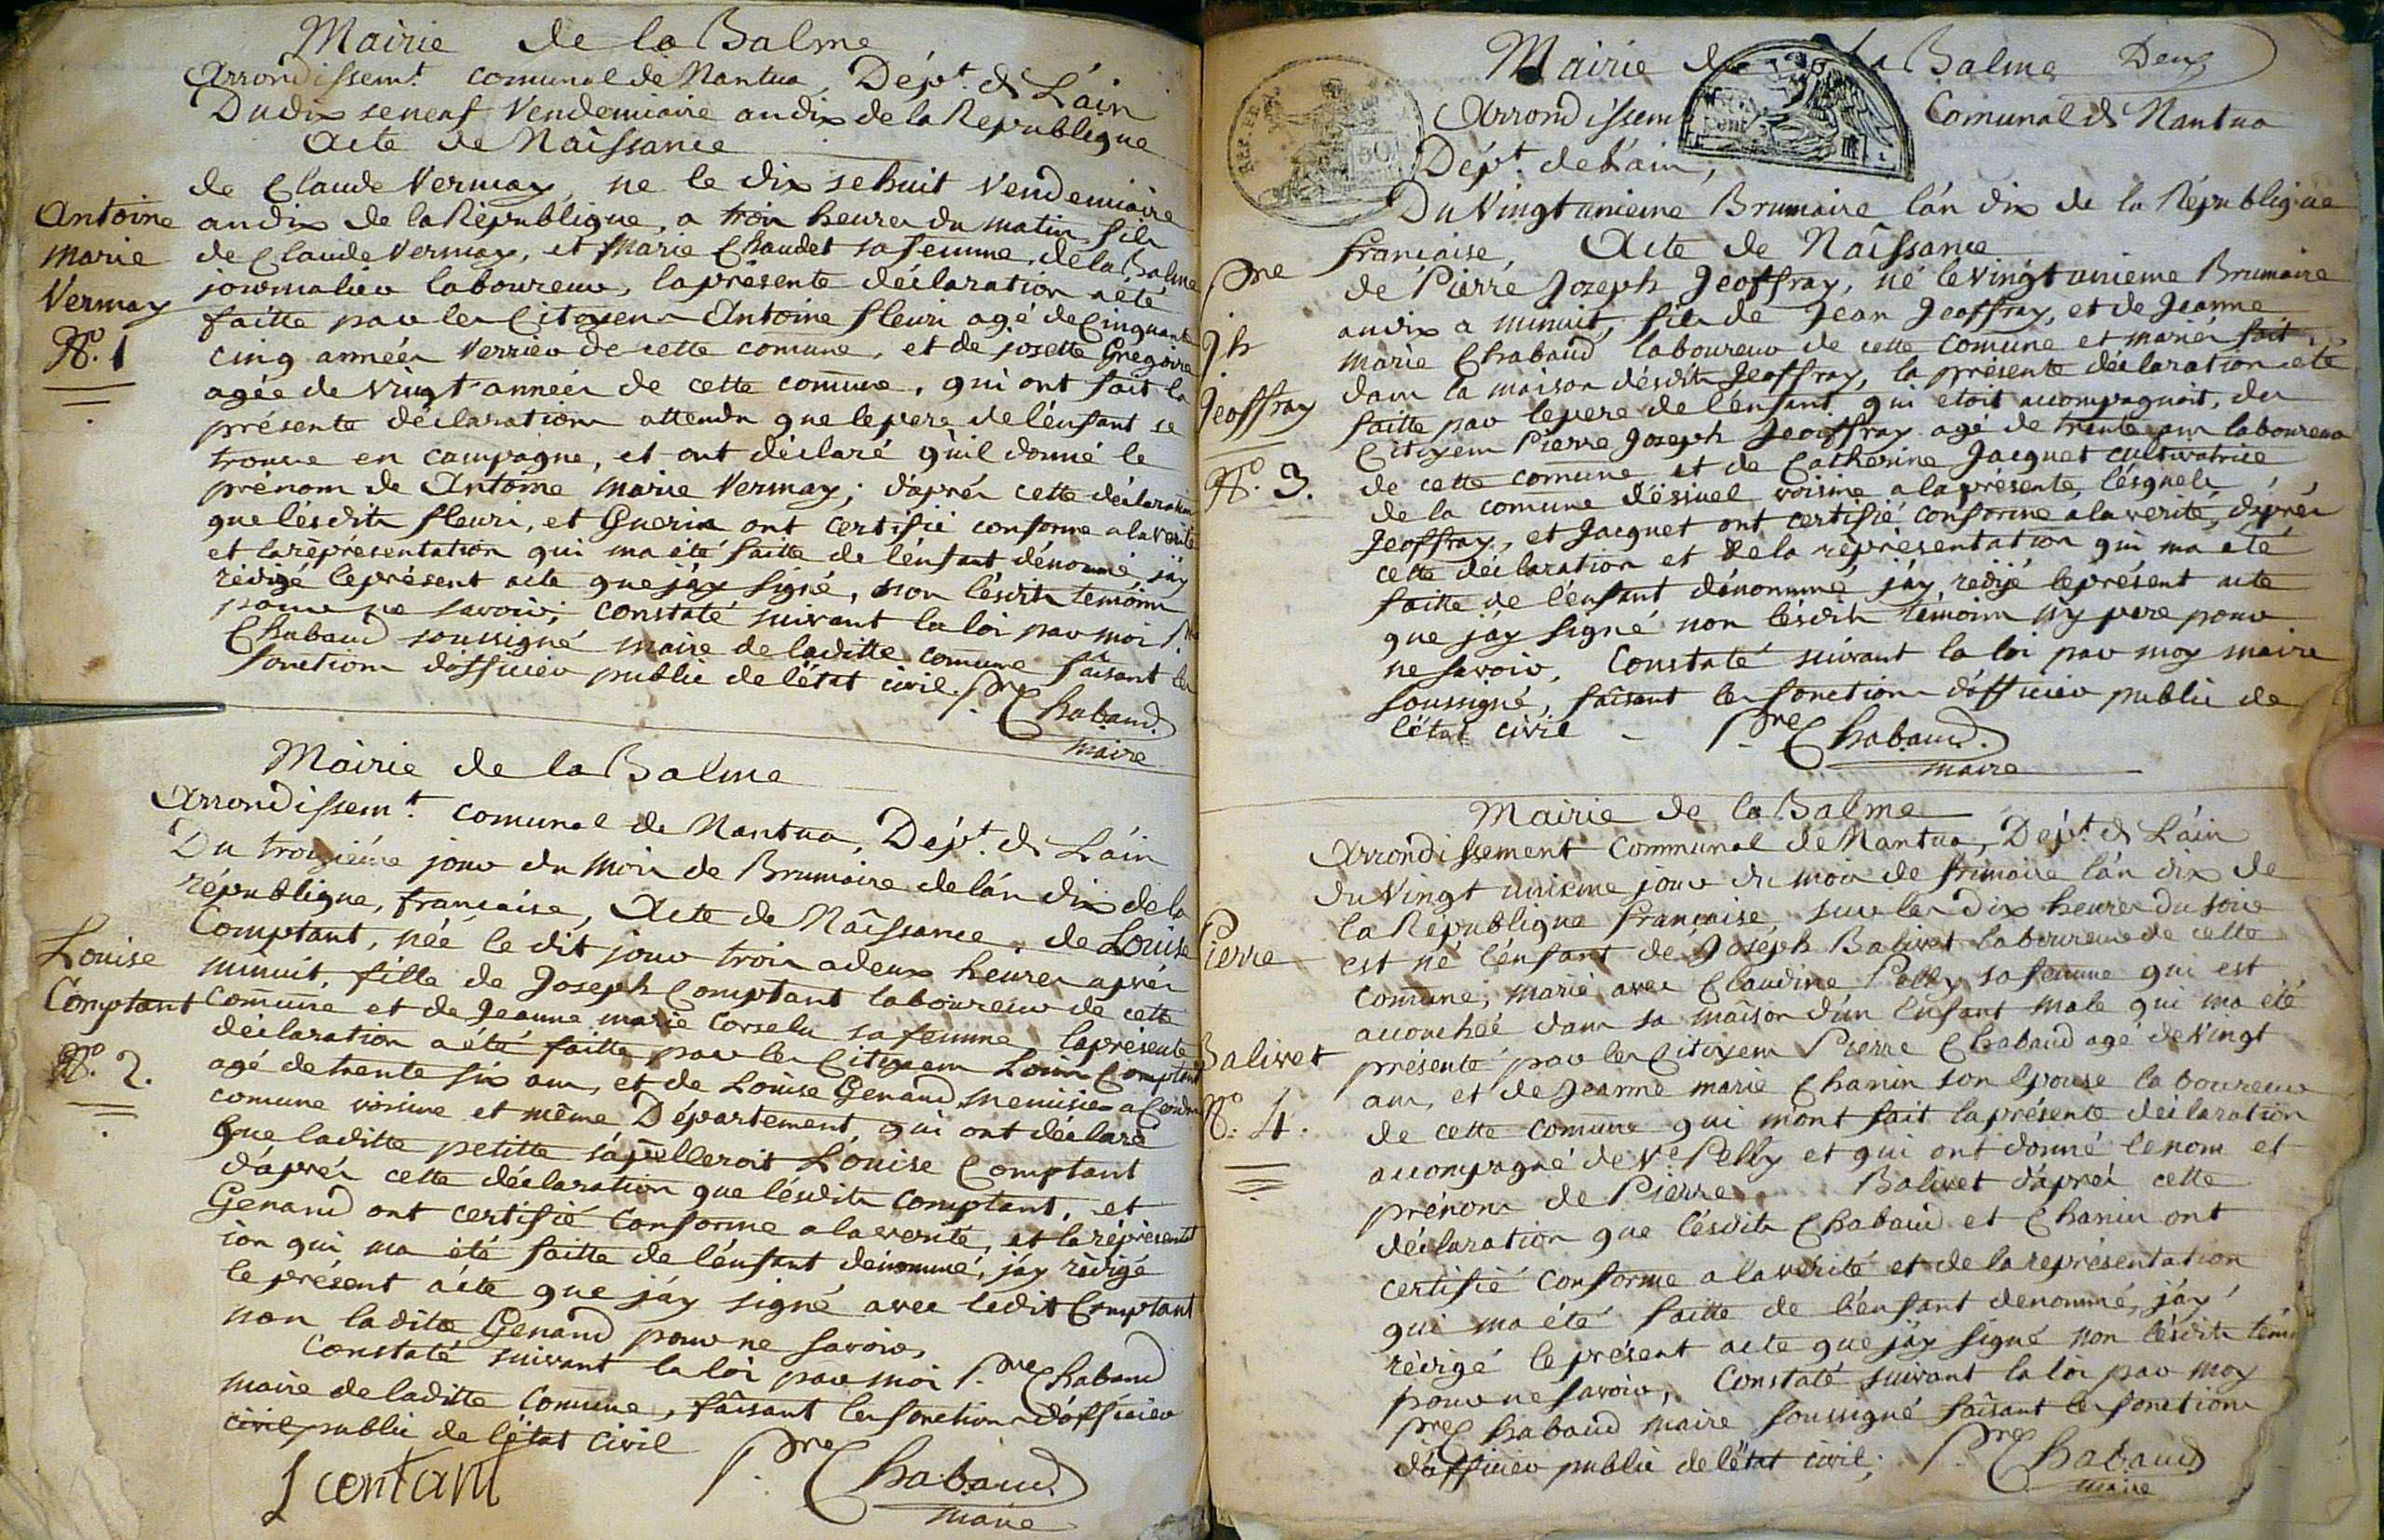 Mairie de la Balme
Arrondissemt. comunal de Nantua, Dépt. de L'ain
Du dix seneuf Vendemiaire an dix de la Republique
Acte de Naîssance
de Claude Vermay, ne le dix sehuit Vendemiaire
an dix de la République, a trois heures du matin fils
de Claude Vermay, et Marie Chaudet sa femme, de la Balme
journalier laboureur, la présente déclaration a été
faitte par les Citoyens Antoine fleuri agé de Cinquante
cinq années Verrier de cette comune, et de josette Gregoire
agée de vingt années de cette comune, qui ont fait la
présente déclaration attendu que le pere de l'énfant se
trouve en campagne, et ont déclaré qu'il donné le
prénom de Antoine Marie Vermay; d'aprés cette déclaration
que lésdits fleuri, et Guerin ont certifié conforme a la verité
et la réprésentation qui ma été faitte de l'énfant dénommé, j'ay
rédigé le présent acte que j'ay signé, non lésdits temoins
pour ne savoir; constaté suivant la loi par moi Pre
Chabaud soussigné maire de laditte comune faisant les
fonctions d'officier public de l'état civil. Pre Chabaud
maire
Antoine
Marie
Vermay
No. 1
Mairie de la Balme
Arrondissemt. comunal de Nantua, Dépt. de L'ain
Du troizième jour du Mois de Brumaire de l'an dix de la
république, française, Acte de Naîssance, de Louise
Comptant, née le dit jour trois a deux heures aprés
minuit, fille de Joseph Comptant laboureur de cette
comune et de Jeanne marie Corselu sa femme, la présente
déclaration a été faitte par les Citoyens Louis Comptant
agé de trente six ans, et de Louise Genaud Menusier a
comune voisine et même Département, qui ont déclaré
que laditte petitte s'apelleroit Louise Comptant
d'aprés cette déclaration que lésdits Comptant, et
Genaud ont certifié conforme a la verité, et la réprésentat
ion qui ma été faitte de l'énfant dénommé, j'ay rédigé
le présent acte que j'ay signé avec ledit Comptant
non ladite Genaud pour ne savoir,
Constaté suivant la loi par moi Pre Chabaud
maire de laditte Comune, faisant les fonctions d'officier
civil public de l'état civil Pre Chabaud
maire
L contant
Louise
Comptant
No. 2.
Mairie de la Balme Deux
Arrondissem Comunal de Nantua
Dépt. de L'ain,
Du Vingt unieme Brumaire l'án dix de la République
française, Acte de Naîssance
de Pierre Joseph Jeoffray, né le vingt unieme Brumaire
an dix a minuit, fils de Jean Jeoffray, et de Jeanne
Marie Chabaud laboureur de cette Comune et mariés fait
dans la maison désdits Jeoffray, la présente déclaration a eté
faitte par le pere de l'énfant, qui etoit accompagnoit, du
Citoyen Pierre Joseph Jeoffray agé de trente ans laboureur
de cette comune et de Catherine Jacquet cultivatrice
de la comune d'ésiuel voisine a la présente, lésquels
Jeoffray, et Jacquet ont certifié conforme a la verité, d'aprés
cette déclaration et de la réprésentation qui ma eté
faitte de l'énfant dénommé, j'ay rédigé le présent acte
que j'ay signé non lésdits témoins ny pere pour
ne savoir, Constaté suivant la loi par moy maire
soussigné, faisant les fonctions d'officier public de
l'état civil – Pre Chabaud.
maire
Pre
Jh
Jeoffray
No. 3.
Mairie de la Balme
Arrondissement Communal de Nantua, Dépt. de L'ain
du Vingt unieme jour du mois de frimaire l'án dix de
la République française, sur les dix heures du soir
est né l'énfant de Joséph Balivet laboureur de cette
comune, marié avec Claudine Pelly sa femme qui est
accouchéé dans sa maîson d'ún Enfant male qui ma été
présenté par les Citoyens Pierre Chabaud agé de vingt
ans, et de Jeanne marie Chanin son Epouse laboureur
de cette comune qui m'ont fait la présente déclaration
accompagné de Ve. Pelly et qui ont donné le nom et
prénom de Pierre Balivet d'aprés cette
déclaration que lésdits Chabaud et Chanin ont
certifié conforme a la vérité et de la représentation
qui ma été faitte de l'énfant denommé, j'ay
rédigé le présent acte que j'ay signé non lésdits tém
pour ne savoir, Constaté suivant la loi par moy
Pre Chabaud maire soussigné faisant les fonctions
d'officier public de l'état civil; Pre Chabaud
maire
Pierre
Balivet
No. 4.